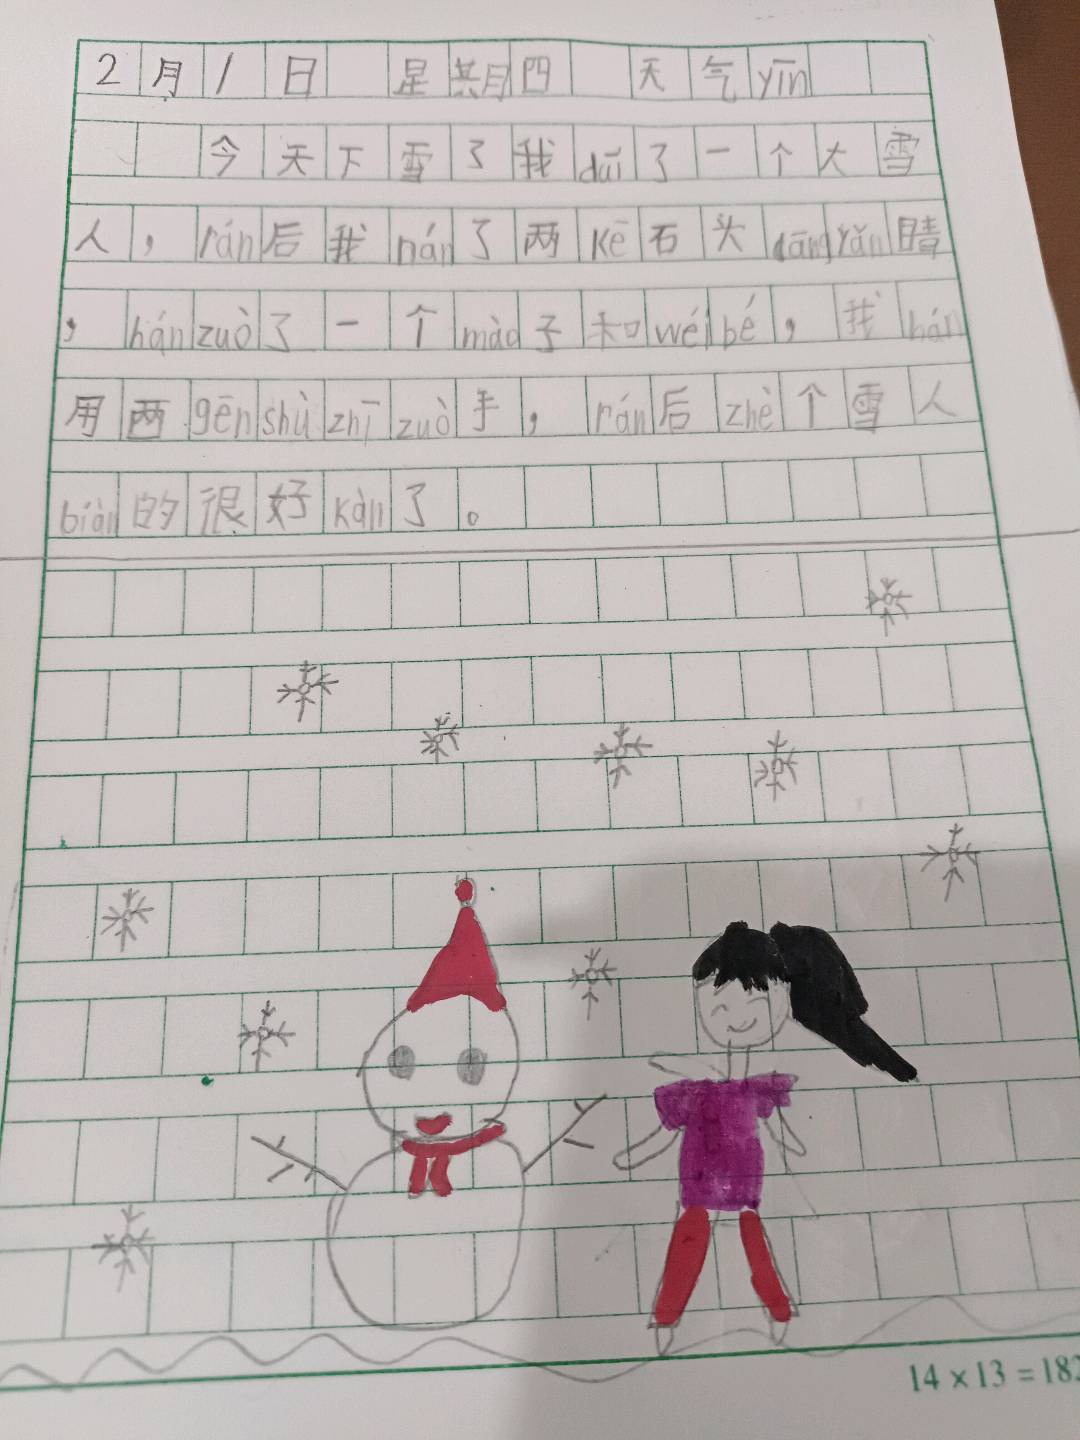 2月1日 星期四 天气yīn
今天下雪了我duī了一个大雪
人，rán后我nán了两kē石头dāngyǎn睛
，hánzuò了一个mào子和wéibé，我hán
用两gēnshùzhīzuò手，rán后zhè个雪人
biàn的很好kàn了。
14×13=182